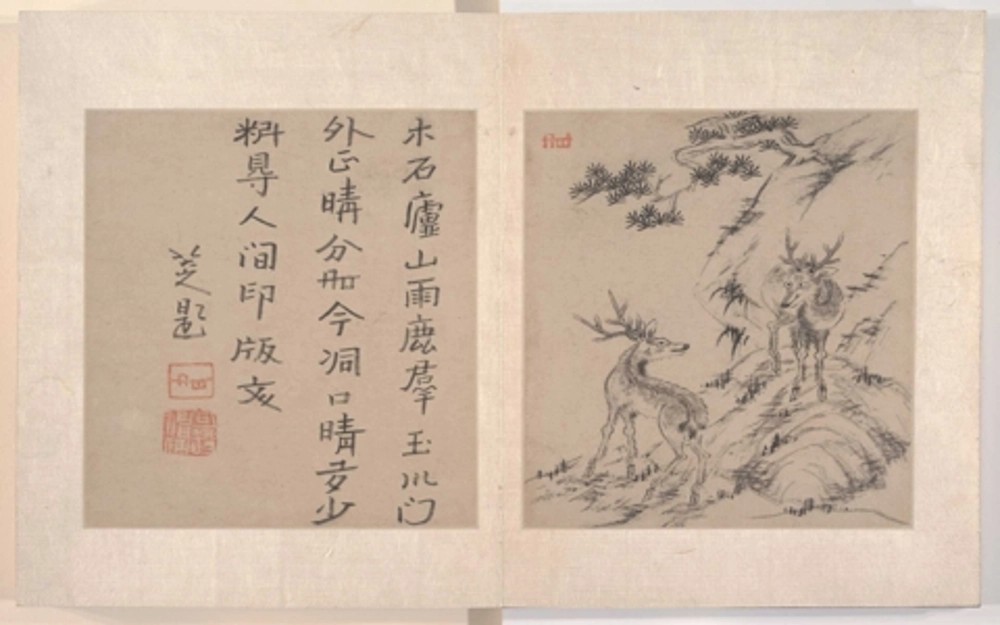 木石廬山雨鹿羣玉川门
外正分今洞口晴多少
料尋人间印版文
題